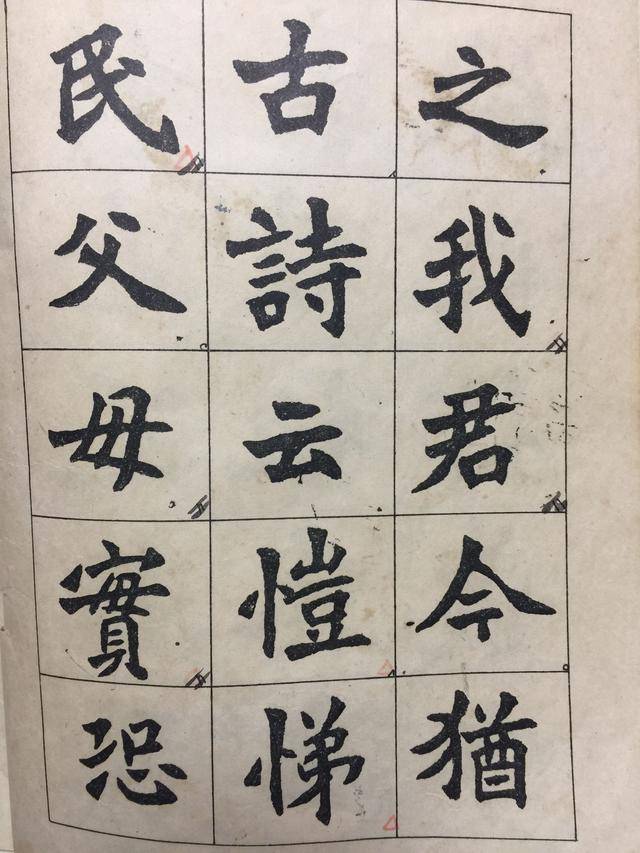 之我君今猶
古詩云愷悌
民父母實恐